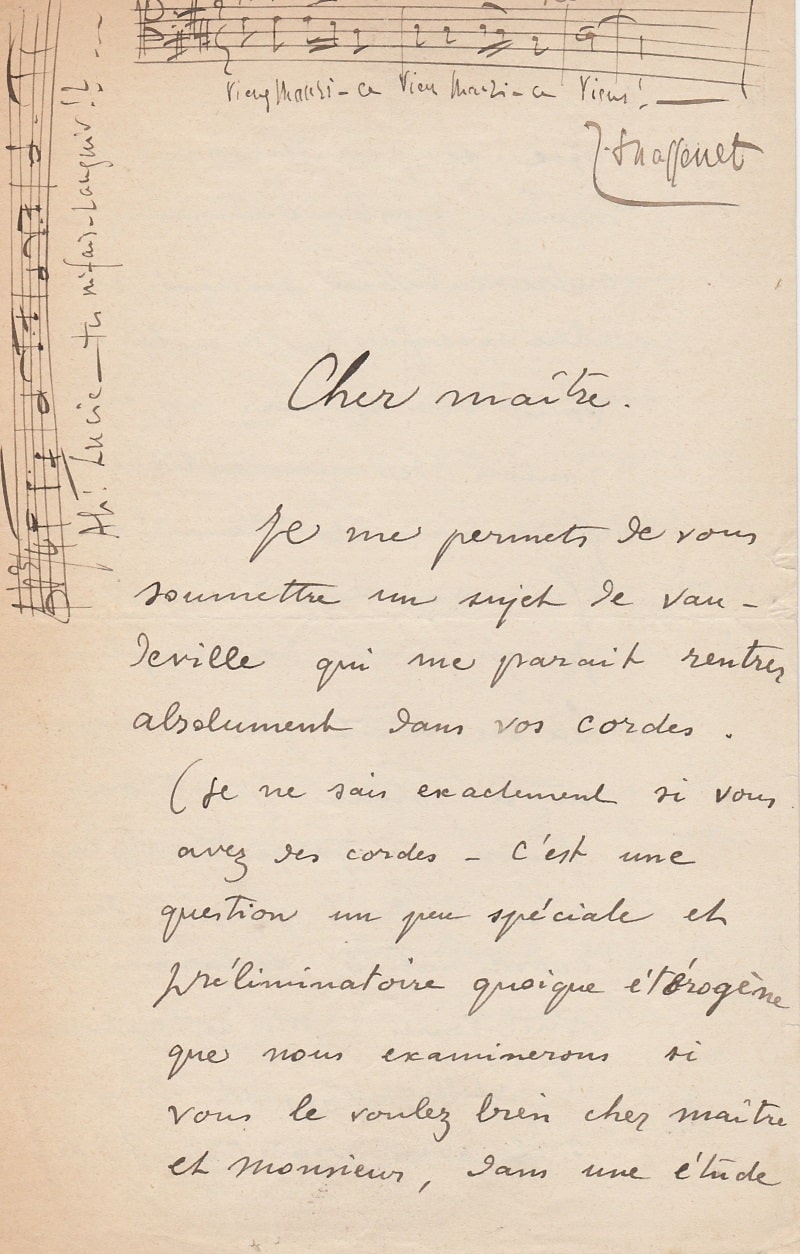 Viens Mauri-ca Viens Mauri-ca Viens! —
J. Massenet
Ah! Lucie — tu m'fais-Languir!!
Cher maître.
Je me permets de vous
soumettre un sujet de vau-
deville qui me parait rentrer
absolument dans vos cordes.
(Je ne sais exactement si vous
avez des cordes - C'est une
question un peu spéciale et
préliminatoire quoique étérogène
que nous examinerons si
vous le voulez bien cher maître
et monsieur, dans une étude